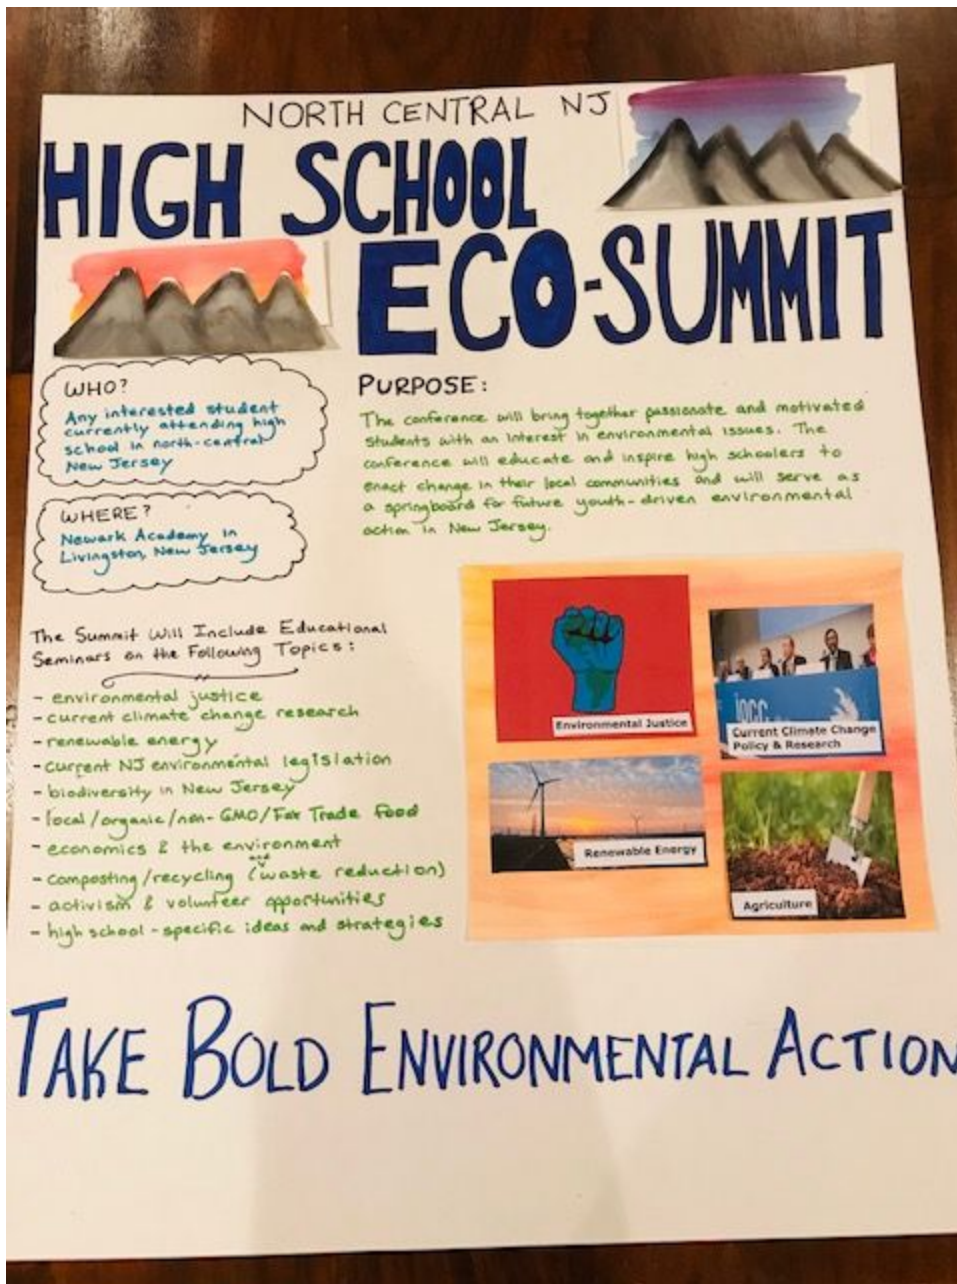 NORTH CENTRAL NJ
HIGH SCHOOL
ECO-SUMMIT
WHO?
Any interested student
currently attending high
school in north-central
New Jersey
WHERE?
Newark Academy in
Livingston, New Jersey
PURPOSE:
The conference will bring together passionate and motivated
students with an interest in environmental issues. The
conference will educate and inspire high schoolers to
enact change in their local communities and will serve as
a springboard for future youth-driven environmental
action in New Jersey.
The Summit Will Include Educational
Seminars on the Following Topics:
- environmental justice
- current climate change research
- renewable energy
- current NJ environmental legislation
- biodiversity in New Jersey
- local/organic/non-GMO/Fair Trade food
- economics & the environment
- composting/recycling (and waste reduction)
- activism & volunteer opportunities
- high school-specific ideas and strategies
Environmental Justice
ipcc
Current Climate Change
Policy & Research
Renewable Energy
Agriculture
TAKE BOLD ENVIRONMENTAL ACTION